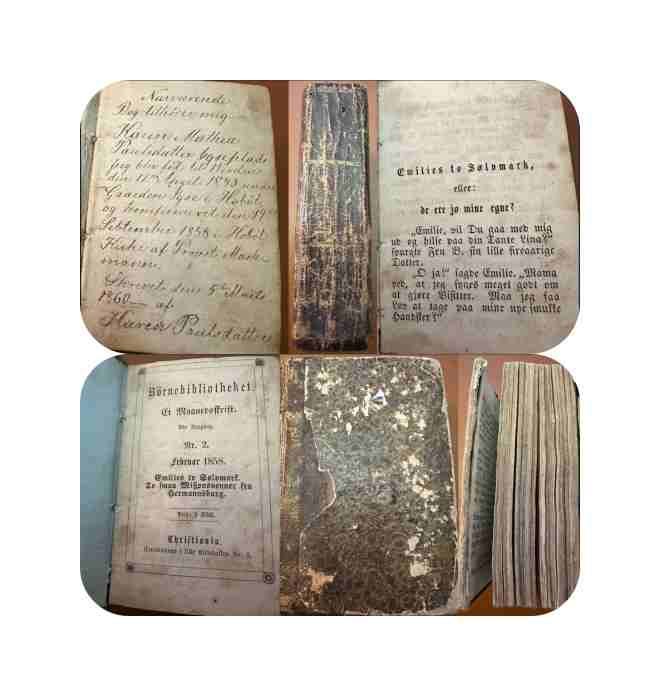 Nærværende
Bog tilhører mig
Karen Mathea
Paulsdatter
jeg blev
den 11te April 1843
i Hobøl
og konfirmeret den 19
September 1858 i Hobøl
Kirke af Provst
Skrevet den 5te Marts
1860 — af
Karen Paulsdatter
Emilies to Sølvmark,
eller:
de ere jo mine egne?
„Emilie, vil Du gaa med mig
ud og hilse paa din Tante Lina?"
spurgte Fru B. sin lille fireaarige
Datter.
„O ja!" sagde Emilie. „Mama
ved, at jeg synes meget godt om
at gjøre Visitter. Maa jeg faa
Lov at tage paa mine nye smukke
Handsker?"
Börnebibliotheket.
Et Maanedsskrift.
Nr. 2.
Februar 1858.
Emilies to Sølvmark.
To smaa Missionsvenner fra
Hermannsburg.
Christiania.